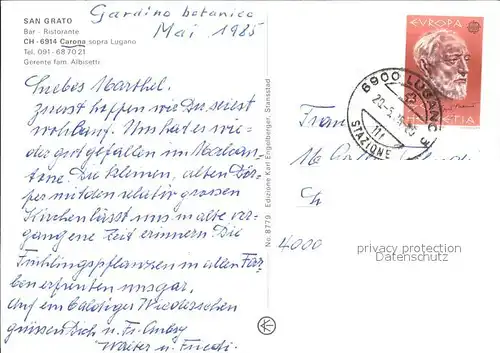 SAN GRATO
Bar - Ristorante
CH - 6914 Carona sopra Lugano
Tel. 091 - 68 70 21
Gerente fam. Albisetti
Giardino botanico
Mai 1985
Liebes Marthel.
Zuerst hoffen wir Du seiest
wohlauf. Uns hat es wie-
der gut gefallen im Malcan-
tone. Die kleinen, alten Dör-
fer mit den relativ grossen
Kirchen lässt uns in alte ver-
gangene Zeit erinnern. Die
Frühlingspflanzen in allen Far-
ben erfreuten uns gar.
Auf ein baldiges Wiedersehen
grüssen Dich u. Fr.
Walter u. Friedi.
No. 8779 Edizione Karl Engelberger, Stansstad
EUROPA
HELVETIA
6900 LUGANO 3
STAZIONE
Frau
4000
privacy protection
Datenschutz